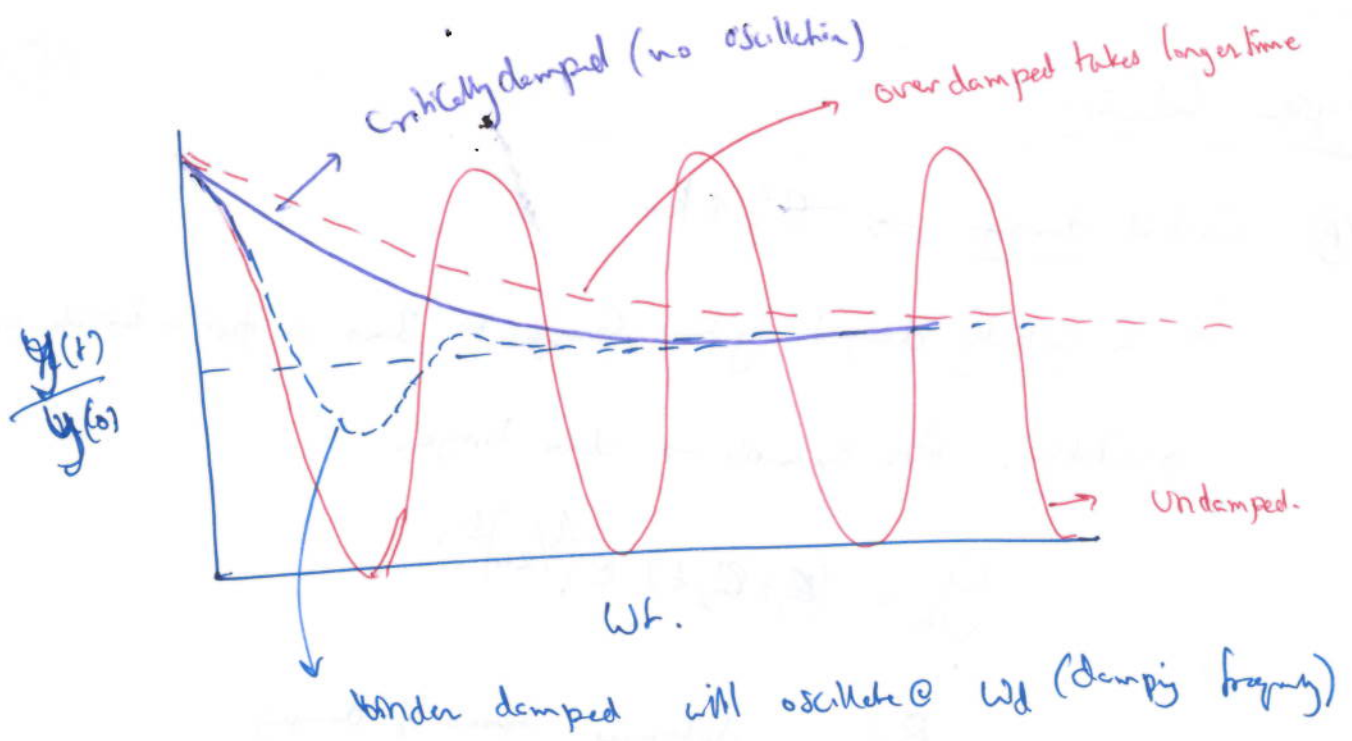 critically damped (no oscillation)
over damped takes longer time
y(t)
y(0)
undamped.
Wt.
under damped will oscillate @ Wd (damping frequency)